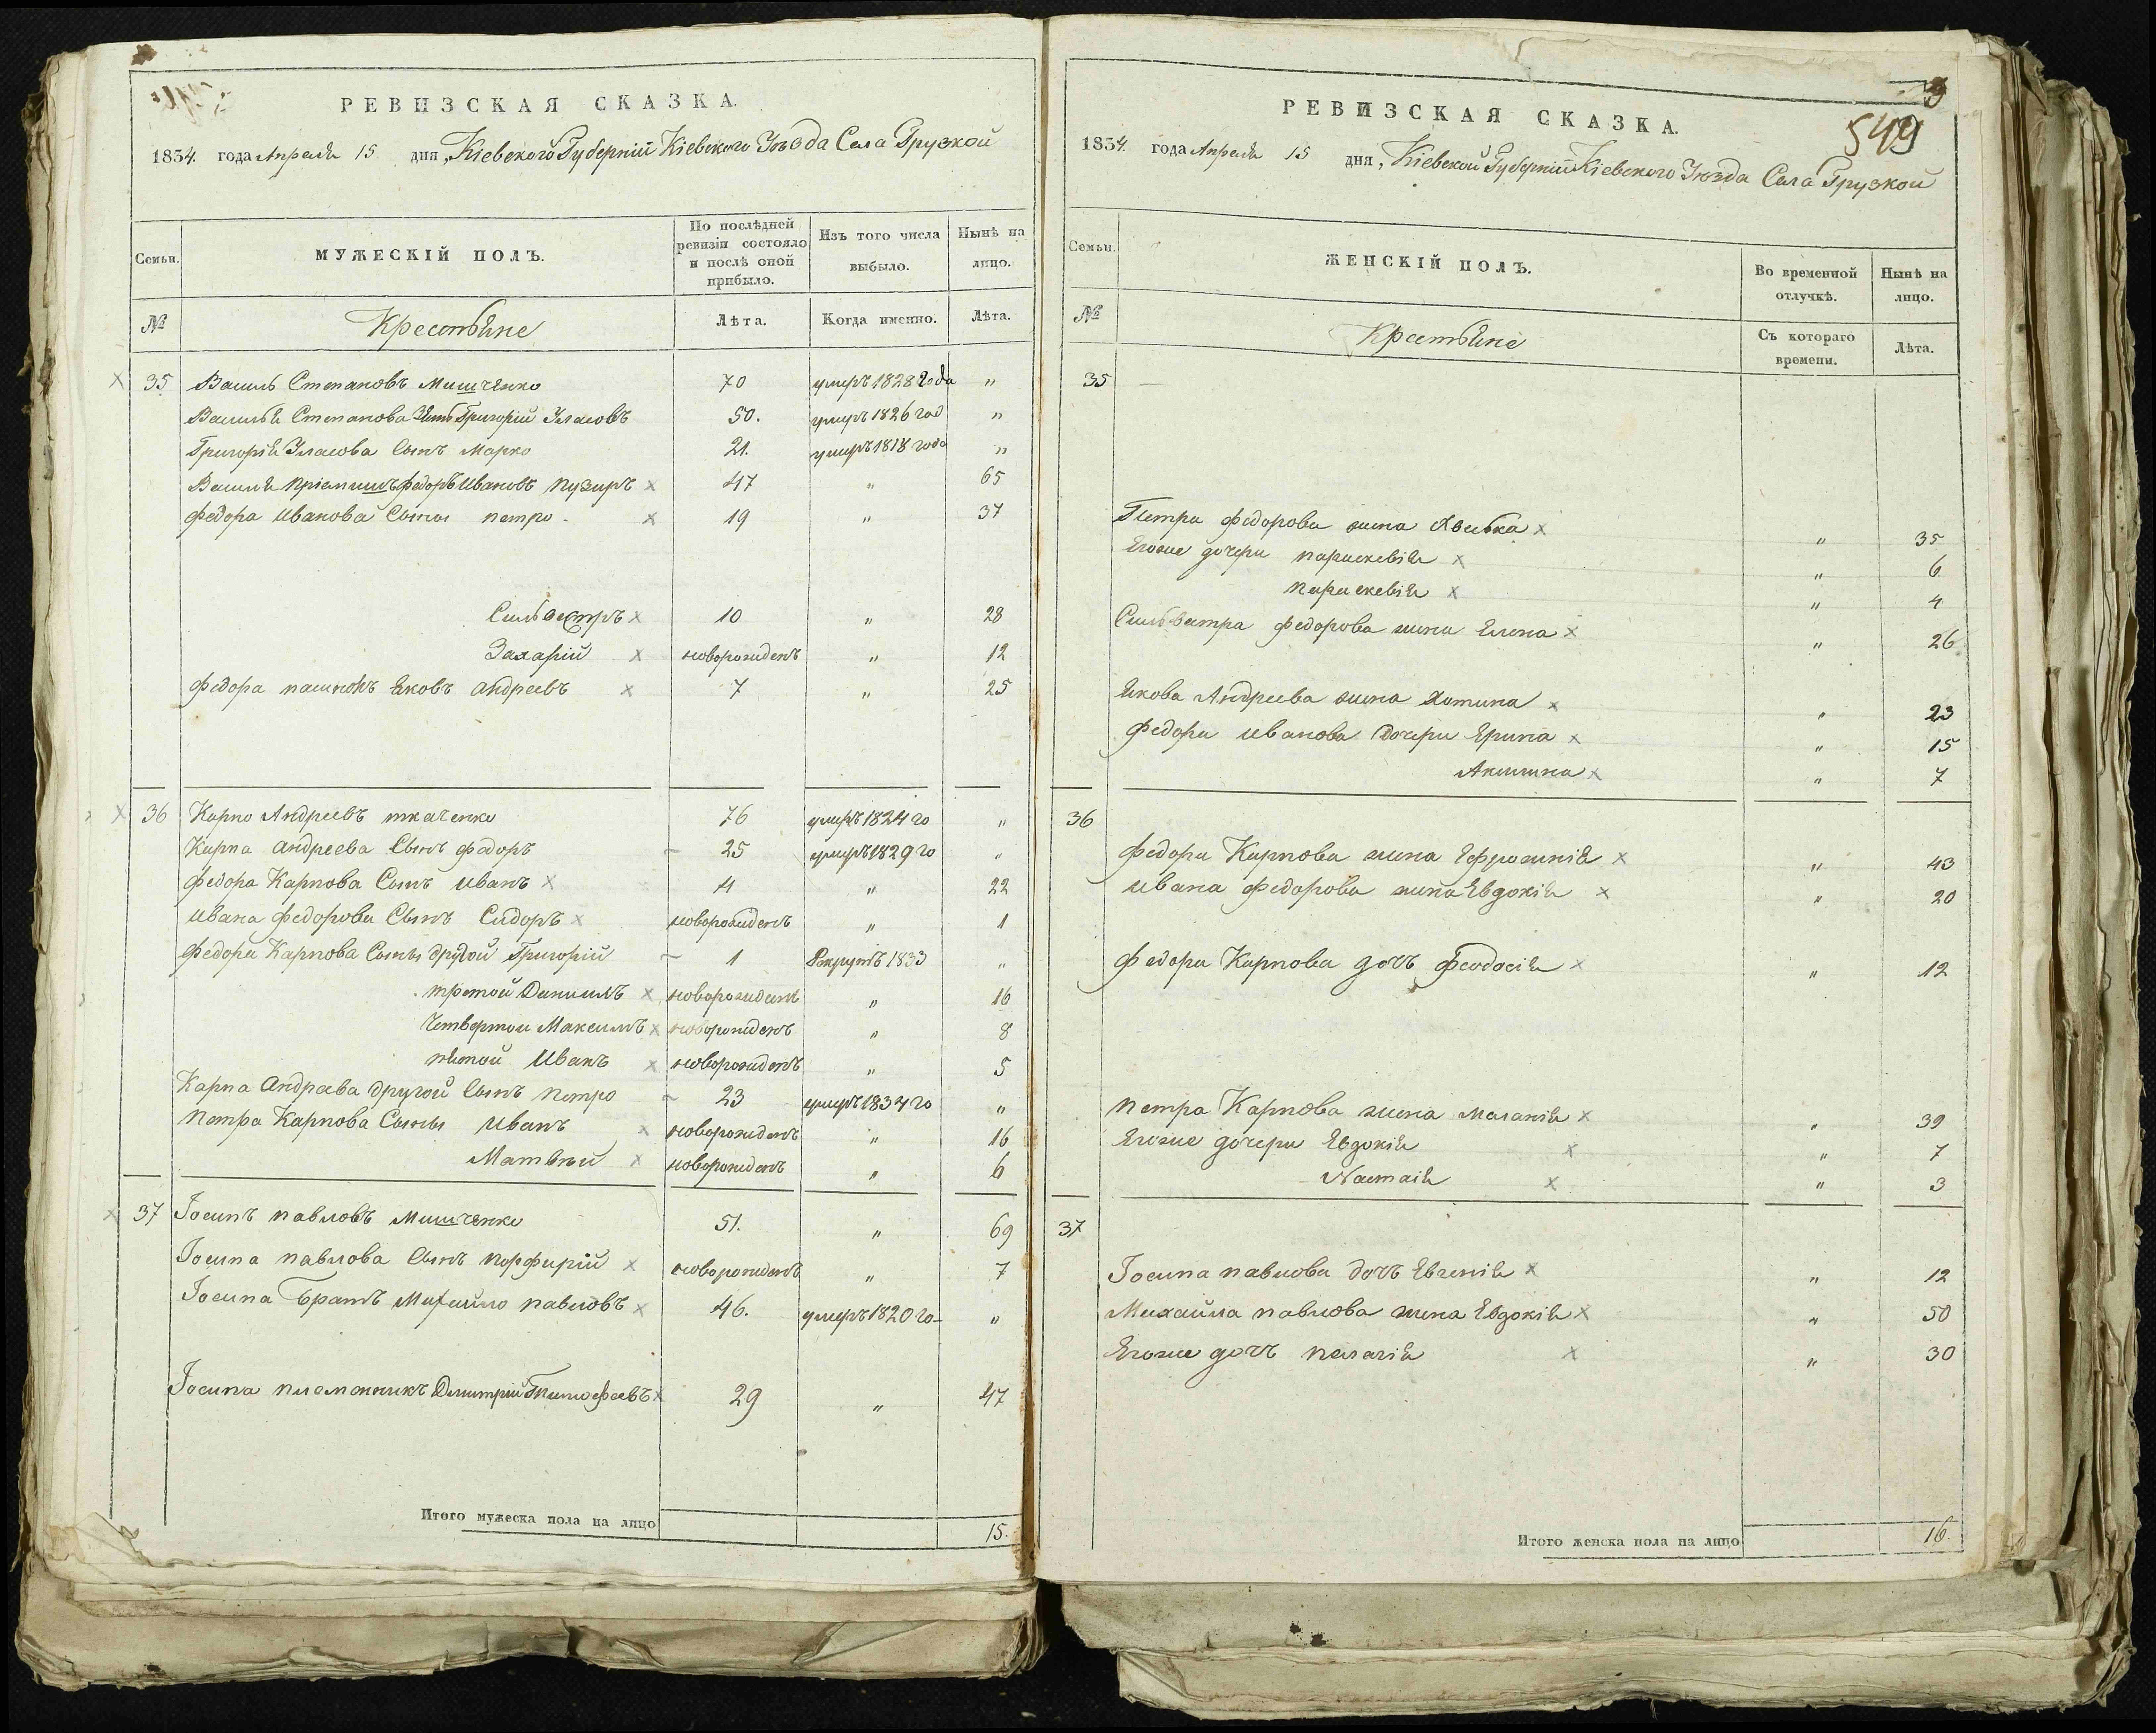 РЕВИЗСКАЯ СКАЗКА.
1834. года Апреля 15 дня, Кіевского Губерніи Кіевского Уѣзда Села Грузкой
Семьи. МУЖЕСКІЙ ПОЛЪ. По послѣдней ревизіи состояло и послѣ оной прибыло. Изъ того числа выбыло. Нынѣ на лицо.
№ Крестьяне Лѣта. Когда именно. Лѣта.
35 Василь Степановъ Мищенко 70 умеръ 1828 года "
Василья Степанова зять Григорій Уласовъ 50. умеръ 1826 год "
Григорія Уласова Сынъ Марко 21. умеръ 1818 года "
Василя пріемышъ Федоръ Ивановъ Пузиръ 47 " 65
Федора Иванова Сыны петро 19 " 37
Сильвестръ 10 " 28
Захарій новорожденъ " 12
Федора Яковъ андреевъ 7 " 25
36 Карпо Андреевъ ткаченко 76 умеръ 1824 го "
Карпа андреева Сынъ федоръ 25 умеръ 1829 го "
федора Карпова Сынъ иванъ 4 " 22
ивана федорова Сынъ Сидоръ новорожденъ " 1
федора Карпова Сынъ другой Григорій 1 Рекрутъ 1833 "
третой Данилъ новорожденъ " 16
Четвертой Максимъ новорожденъ " 8
пятой Иванъ новорожденъ " 5
Карпа андреева другой Сынъ петро 23 умеръ 1834 го "
петра Карпова Сыны иванъ новорожденъ " 16
Матвѣй новорожденъ " 6
37 Іосипъ павловъ Мищенко 51. " 69
Іосипа павлова Сынъ порфирій новорожденъ " 7
Іосипа Братъ Михайло павловъ 46. умеръ 1820 го "
Іосипа племянникъ Димитрій Тимофеевъ 29 " 47
Итого мужеска пола на лицо 15.
549
РЕВИЗСКАЯ СКАЗКА.
1834. года Апреля 15 дня, Кіевской Губерніи Кіевского Уѣзда Села Грузкой
Семьи. ЖЕНСКІЙ ПОЛЪ. Во временной отлучкѣ. Нынѣ на лицо.
№ Крестьяне Съ котораго времени. Лѣта.
35
Петра Федорова жена Хвеська " 35
Егоже дочери параскевія " 6
параскевія " 4
Сильвестра федорова жена Елена " 26
Якова Андреева жена Хотина " 23
Федора иванова Дочери Ерина " 15
Акилина " 7
36
федора Карпова жена Ефросинія " 43
ивана федорова жена Евдокія " 20
федора Карпова дочъ Феодосія " 12
петра Карпова жена Маланія " 39
Егоже дочери Евдокія " 7
Настасія " 3
37
Іосипа павлова дочъ Евгенія " 12
Михайла павлова жена Евдокія " 50
Егоже дочъ пелагія " 30
Итого женска пола на лицо 16.